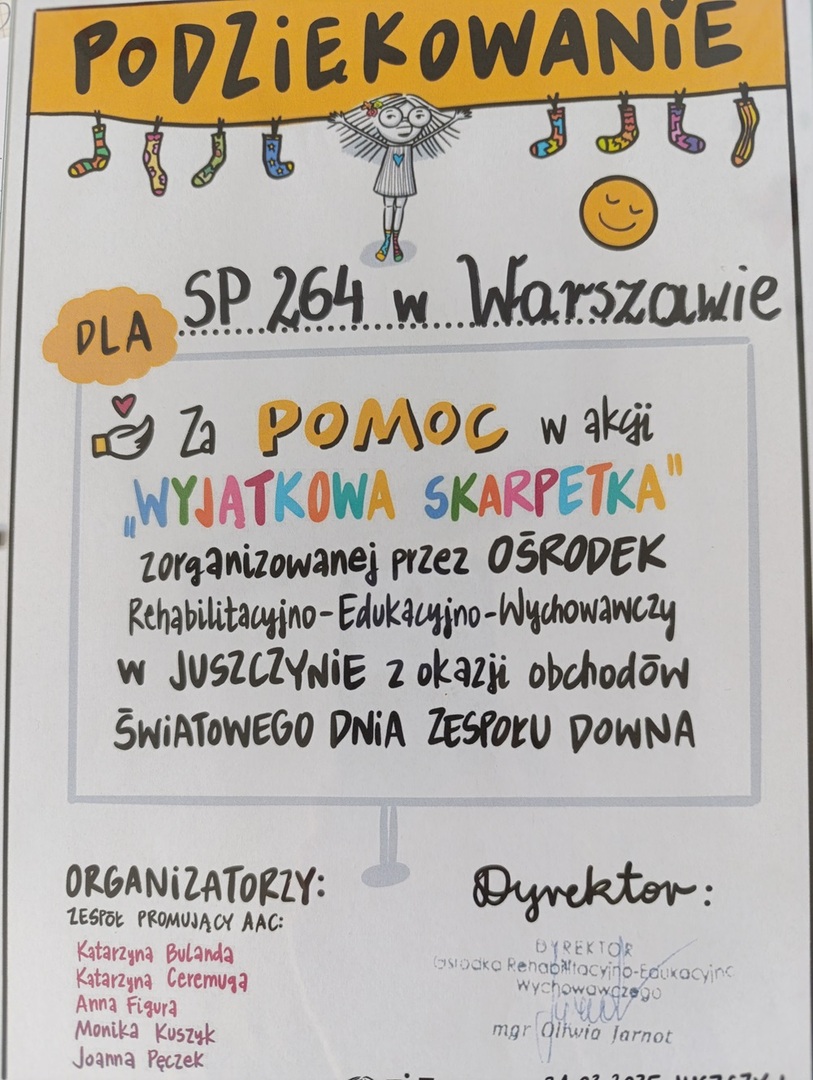 PODZIĘKOWANIE
DLA SP 264 w Warszawie
Za POMOC w akcji
„WYJĄTKOWA SKARPETKA"
zorganizowanej przez OŚRODEK
Rehabilitacyjno-Edukacyjno-Wychowawczy
w JUSZCZYNIE z okazji obchodów
ŚWIATOWEGO DNIA ZESPOŁU DOWNA
ORGANIZATORZY:
ZESPÓŁ PROMUJĄCY AAC:
Katarzyna Bulanda
Katarzyna Ceremuga
Anna Figura
Monika Kuszyk
Joanna Pęczek
Dyrektor:
DYREKTOR
Ośrodka Rehabilitacyjno-Edukacyjno
Wychowawczego
mgr Oliwia Jarnot